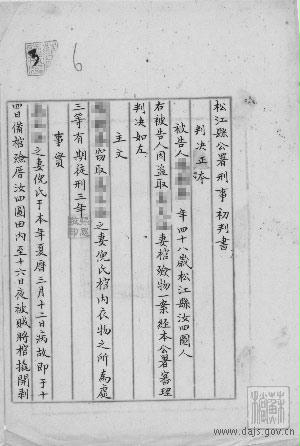 6
3
松江縣公署刑事初判書
判决正本
被告人 年四十八歲松江縣汝四圖人
右被告人因盜取 妻棺殮物一案經本公署審理
判决如左
主文
竊取 之妻倪氏棺內衣物之所為處
三等有期徒刑三年
事實
之妻倪氏於本年夏曆三月十二日病故即于十
四日備棺殮厝汝四圖田內至十六日夜被賊將棺撬開剥
www.dajs.gov.cn